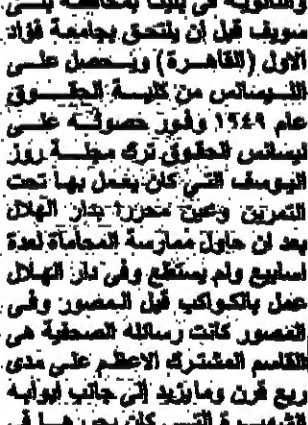 والثانوية فى ببا بمحافظة بنى
سويف قبل أن يلتحق بجامعة فؤاد
الاول (القاهرة) ويحصل على
الليسانس من كلية الحقوق
عام ١٩٤٩ وفور حصوله على
ليسانس الحقوق ترك مجلة روز
اليوسف التى كان يعمل بها تحت
التمرين وعين محررا بدار الهلال
بعد ان حاول ممارسة المحاماة لعدة
اسابيع ولم يستطع وفى دار الهلال
عمل بالكواكب قبل المصور وفى
المصور كانت رسائله الصحفية هى
القاسم المشترك الاعظم على مدى
ربع قرن وما يزيد إلى جانب ابوابه
الشهيرة التى كان يحررها فى